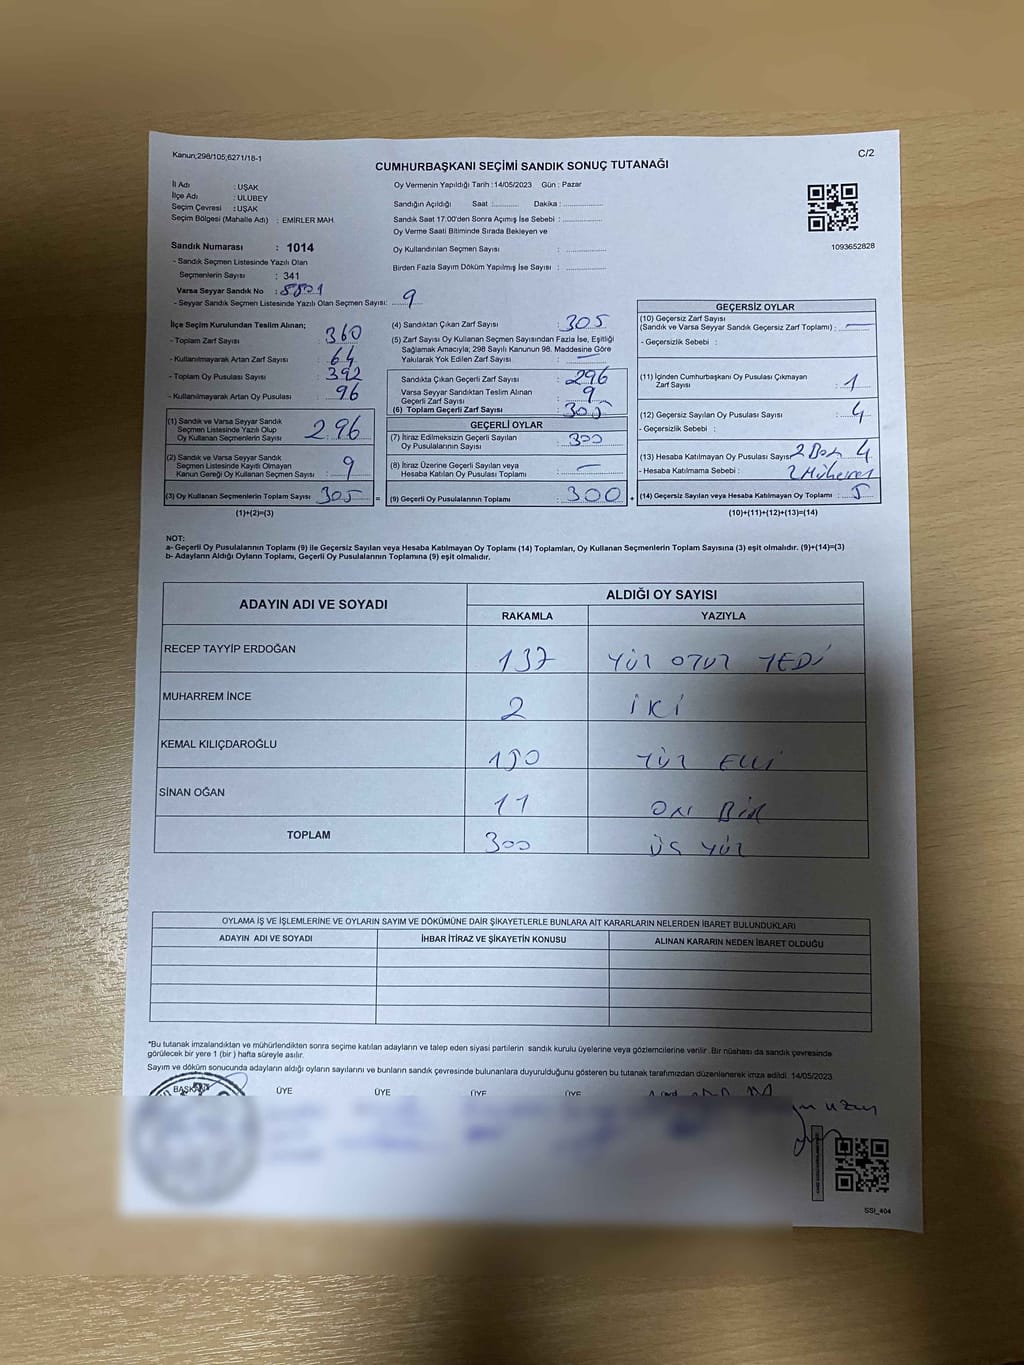 Kanun;298/105,6271/18-1
C/2
CUMHURBAŞKANI SEÇİMİ SANDIK SONUÇ TUTANAĞI
İl Adı : UŞAK
İlçe Adı : ULUBEY
Seçim Çevresi : UŞAK
Seçim Bölgesi (Mahalle Adı) : EMİRLER MAH.
Sandık Numarası : 1014
- Sandık Seçmen Listesinde Yazılı Olan
Seçmenlerin Sayısı : 341
Varsa Seyyar Sandık No :
- Seyyar Sandık Seçmen Listesinde Yazılı Olan Seçmen Sayısı: 9
Oy Vermenin Yapıldığı Tarih : 14/05/2023 Gün : Pazar
Sandığın Açıldığı Saat :............ Dakika :................
Sandık Saat 17:00'den Sonra Açımış İse Sebebi :................
Oy Verme Saati Bitiminde Sırada Bekleyen ve
Oy Kullandırılan Seçmen Sayısı :................
Birden Fazla Sayım Döküm Yapılmış İse Sayısı :................
1093652828
İlçe Seçim Kurulundan Teslim Alınan;
- Toplam Zarf Sayısı : 360
- Kullanılmayarak Artan Zarf Sayısı : 64
- Toplam Oy Pusulası Sayısı : 392
- Kullanılmayarak Artan Oy Pusulası : 96
(1) Sandık ve Varsa Seyyar Sandık
Seçmen Listesinde Yazılı Olup
Oy Kullanan Seçmenlerin Sayısı : 296
(2) Sandık ve Varsa Seyyar Sandık
Seçmen Listesinde Kayıtlı Olmayan
Kanun Gereği Oy Kullanan Seçmen Sayısı : 9
(3) Oy Kullanan Seçmenlerin Toplam Sayısı : 305 =
(1)+(2)=(3)
(4) Sandıktan Çıkan Zarf Sayısı : 305
(5) Zarf Sayısı Oy Kullanan Seçmen Sayısından Fazla İse, Eşitliği
Sağlamak Amacıyla; 298 Sayılı Kanunun 98. Maddesine Göre
Yakılarak Yok Edilen Zarf Sayısı : —
Sandıkta Çıkan Geçerli Zarf Sayısı : 296
Varsa Seyyar Sandıktan Teslim Alınan
Geçerli Zarf Sayısı : 9
(6) Toplam Geçerli Zarf Sayısı : 305
GEÇERLİ OYLAR
(7) İtiraz Edilmeksizin Geçerli Sayılan
Oy Pusulalarının Sayısı : 300
(8) İtiraz Üzerine Geçerli Sayılan veya
Hesaba Katılan Oy Pusulası Toplamı : —
(9) Geçerli Oy Pusulalarının Toplamı : 300 +
GEÇERSİZ OYLAR
(10) Geçersiz Zarf Sayısı
(Sandık ve Varsa Seyyar Sandık Geçersiz Zarf Toplamı) : —
- Geçersizlik Sebebi :
(11) İçinden Cumhurbaşkanı Oy Pusulası Çıkmayan
Zarf Sayısı : 1
(12) Geçersiz Sayılan Oy Pusulası Sayısı : 4
- Geçersizlik Sebebi :
(13) Hesaba Katılmayan Oy Pusulası Sayısı 2 Boş 4
- Hesaba Katılmama Sebebi : 2
(14) Geçersiz Sayılan veya Hesaba Katılmayan Oy Toplamı : 5
(10)+(11)+(12)+(13)=(14)
NOT:
a- Geçerli Oy Pusulalarının Toplamı (9) ile Geçersiz Sayılan veya Hesaba Katılmayan Oy Toplamı (14) Toplamları, Oy Kullanan Seçmenlerin Toplam Sayısına (3) eşit olmalıdır. (9)+(14)=(3)
b- Adayların Aldığı Oyların Toplamı, Geçerli Oy Pusulalarının Toplamına (9) eşit olmalıdır.
ADAYIN ADI VE SOYADI ALDIĞI OY SAYISI
RAKAMLA YAZIYLA
RECEP TAYYİP ERDOĞAN 137 YÜZ OTUZ YEDİ
MUHARREM İNCE 2 İKİ
KEMAL KILIÇDAROĞLU 150 YÜZ ELLİ
SİNAN OĞAN 11 ON BİR
TOPLAM 300 ÜÇ YÜZ
OYLAMA İŞ VE İŞLEMLERİNE VE OYLARIN SAYIM VE DÖKÜMÜNE DAİR ŞİKAYETLERLE BUNLARA AİT KARARLARIN NELERDEN İBARET BULUNDUKLARI
ADAYIN ADI VE SOYADI İHBAR İTİRAZ VE ŞİKAYETİN KONUSU ALINAN KARARIN NEDEN İBARET OLDUĞU
*Bu tutanak imzalandıktan ve mühürlendikten sonra seçime katılan adayların ve talep eden siyasi partilerin sandık kurulu üyelerine veya gözlemcilerine verilir. Bir nüshası da sandık çevresinde
görülecek bir yere 1 (bir ) hafta süreyle asılır.
Sayım ve döküm sonucunda adayların aldığı oyların sayılarını ve bunların sandık çevresinde bulunanlara duyurulduğunu gösteren bu tutanak tarafımızdan düzenlenerek imza edildi. 14/05/2023
BAŞKAN ÜYE ÜYE ÜYE ÜYE
SSI_404